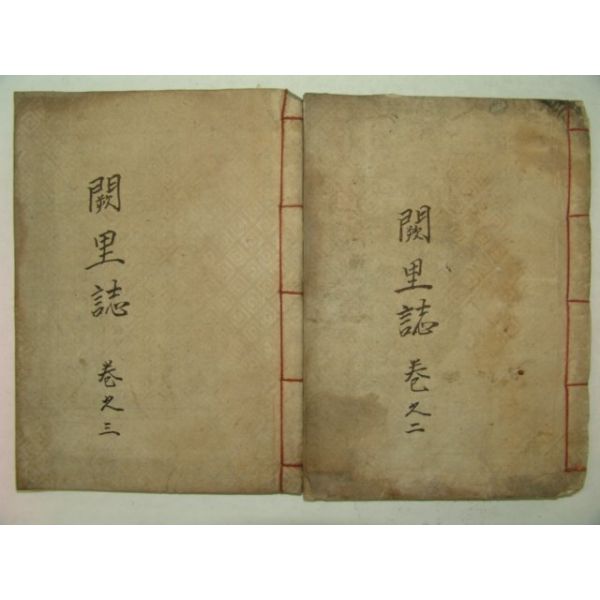 闕里誌 卷之二
闕里誌 卷之三